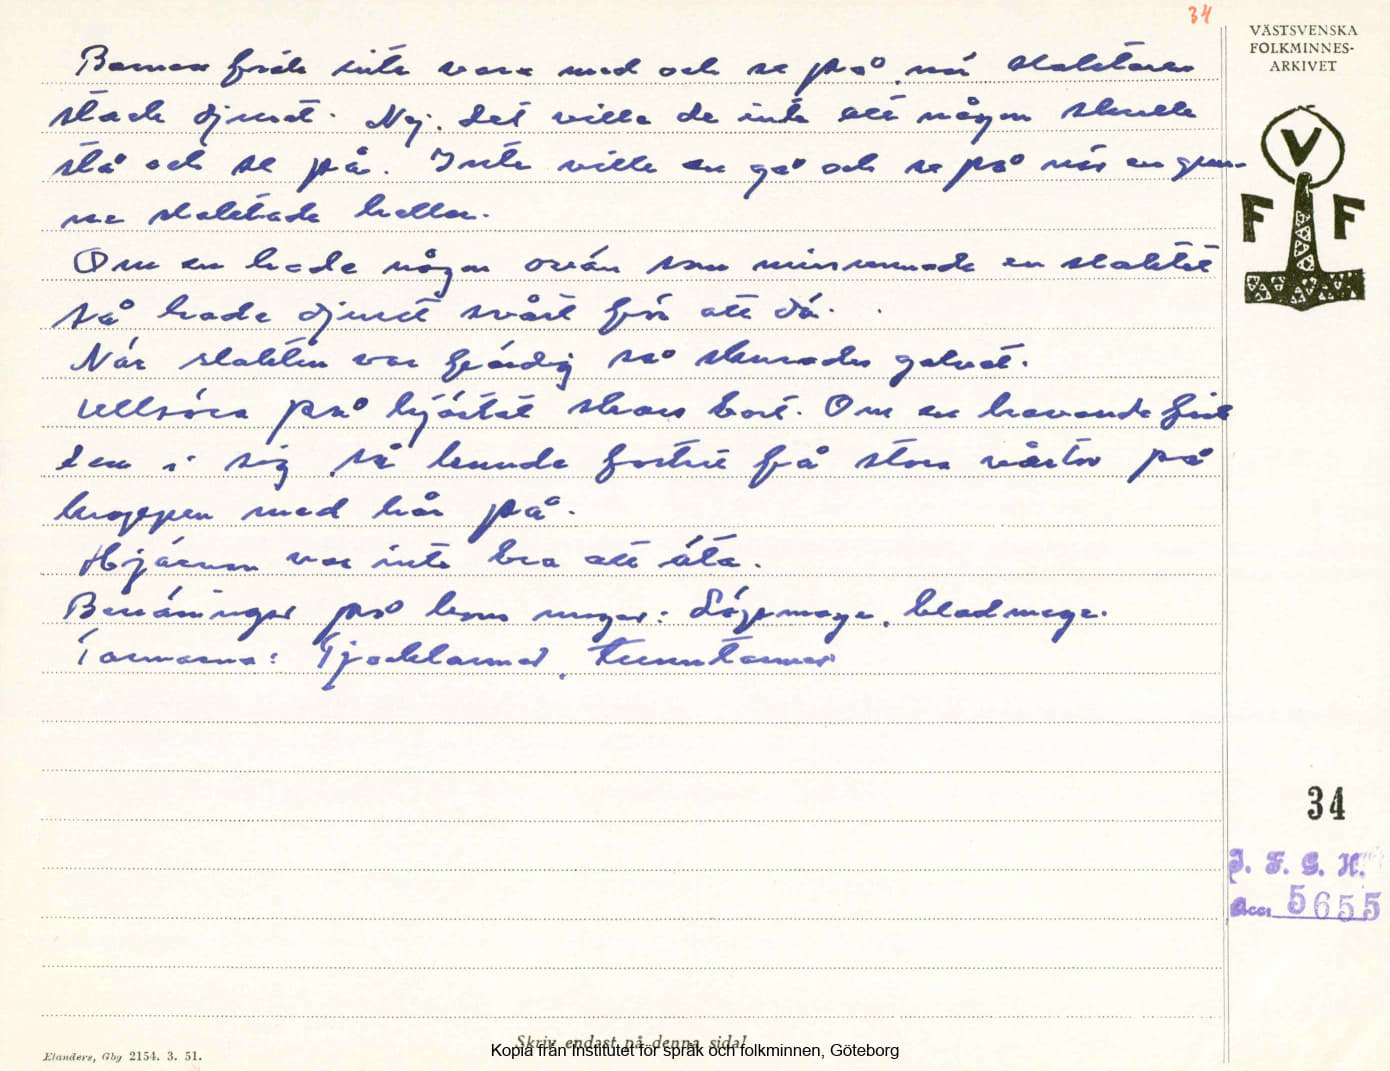 34
VÄSTSVENSKA
FOLKMINNES-
ARKIVET
V
F F
Barnen fick inte vara med och se på när slaktaren
stack djuret. Nej, det ville de inte att någon skulle
stå och se på. Inte ville en gå och se på när en gran-
ne slaktade heller.
Om en hade någon ovän som missunnade en slaktet
så hade djuret svårt för att dö.
När slakten var färdig så skurades golvet.
på hjärtat skars bort. Om en havande fick
den i sig så kunde fostret få stora vårtor på
kroppen med hår på.
Hjärnan var inte bra att äta.
Benäningar på kons magar: Löpmage, bladmage.
Tarmarna: Tjocktarmar, tunntarmar
34
I. F. G. H.
Acc. 5655
Skriv endast på denna sida!
Elanders, Gbg 2154. 3. 51.
Kopia från Institutet för språk och folkminnen, Göteborg